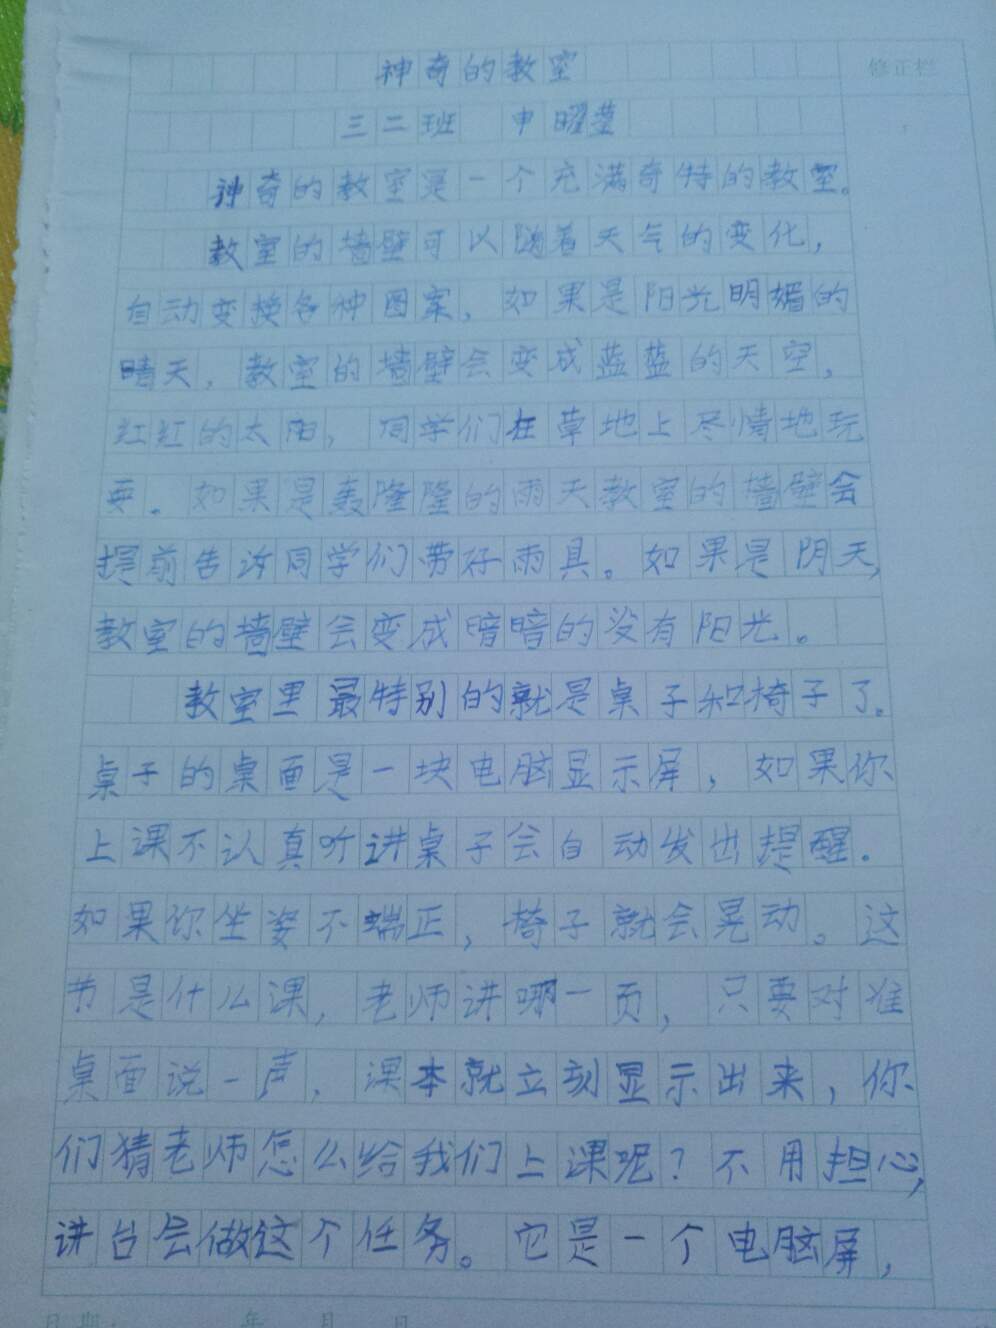 神奇的教室
修正栏
三二班 申曜莹
神奇的教室是一个充满奇特的教室。
教室的墙壁可以随着天气的变化，
自动变换各种图案，如果是阳光明媚的
晴天，教室的墙壁会变成蓝蓝的天空，
红红的太阳，同学们在草地上尽情地玩
耍。如果是轰隆隆的雨天教室的墙壁会
提前告诉同学们带好雨具。如果是阴天，
教室的墙壁会变成暗暗的没有阳光。
教室里最特别的就是桌子和椅子了。
桌子的桌面是一块电脑显示屏，如果你
上课不认真听讲桌子会自动发出提醒.
如果你坐姿不端正，椅子就会晃动。这
节是什么课，老师讲哪一页，只要对准
桌面说一声，课本就立刻显示出来，你
们猜老师怎么给我们上课呢？不用担心，
讲台会做这个任务。它是一个电脑屏，
日期： 年 月 日